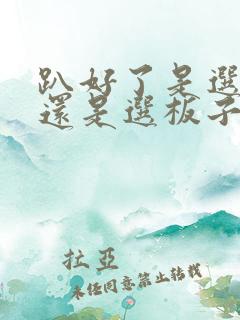 趴好了是選
還是選板子
拉亞
未經同意禁止轉載